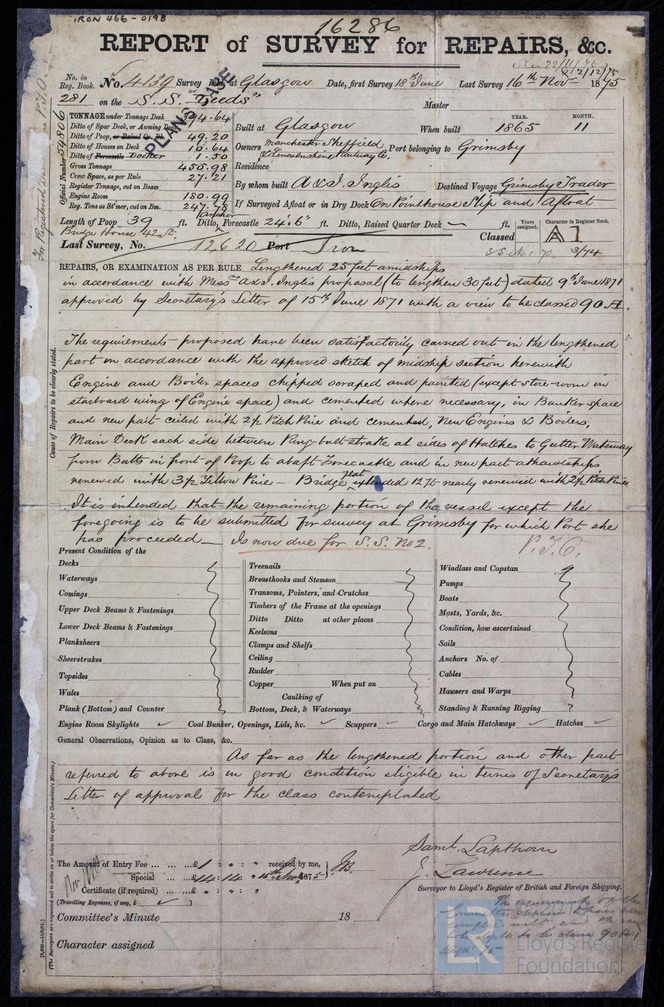 IRON 466-0198
16286
REPORT of SURVEY for REPAIRS, &c.
No. in Reg. Book. No. 4139 Survey held at Glasgow Date, first Survey 18th June Last Survey 16th Nov 1875
281 on the S.S. "Leeds" Master
TONNAGE under Tonnage Deck 394.64
Ditto of Spar Deck, or Awning Deck
Ditto of Poop, or Raised Qr. Dk. 49.20
Ditto of Houses on Deck 10.64
Ditto of Forecastle 1.50
Gross Tonnage 455.98
Crew Space, as per Rule 27.21
Register Tonnage, cut on Beam
Engine Room 180.99
Reg. Tons as St'mer, cut on Bm. 247.78
Official Number 54806
PLANS CASE
Built at Glasgow When built YEAR. 1865 MONTH. 11
Owners Manchester Sheffield & Lincolnshire Railway Co. Port belonging to Grimsby
Residence
By whom built A & J. Inglis Destined Voyage Grimsby Trader
If Surveyed Afloat or in Dry Dock On Pointhouse Slip and Afloat
Length of Poop 39 ft. Ditto, Forecastle 24.6 ft. Ditto, Raised Quarter Deck — ft.
Bridge House 42 ft.
Years assigned. Character in Register Book.
Classed A 1
S.S. No 1-70 3/74
Last Survey, No. 12620 Port Iron
REPAIRS, OR EXAMINATION AS PER RULE Lengthened 25 feet amidships
in accordance with Messrs A & J. Inglis proposal (to lengthen 30 feet) dated 9th June 1871
approved by Secretary's Letter of 15th June 1871 with a view to be classed 90 A.
Cause of Repairs to be clearly stated.
The requirements proposed have been satisfactorily carried out in the lengthened
part in accordance with the approved sketch of midship section herewith
Engine and Boiler spaces chipped scraped and painted (except store-room in
starboard wing of Engine space) and cemented where necessary, in Bunker space
and new part ceiled with 2½ Pitch Pine and cemented, New Engines & Boilers,
Main Deck each side between Ring bolt strake at sides of Hatches to Gutter Waterway
from Butts in front of Poop to abaft Forecastle and in new part athwartships
renewed with 3½ Yellow Pine — Bridge flat extended 12 ft nearly renewed with 2½ Pitch Pine
It is intended that the remaining portion of the vessel except the
foregoing is to be submitted for survey at Grimsby for which Port she
has proceeded — Is now due for S.S. No 2.
Present Condition of the
Decks
Waterways
Comings
Upper Deck Beams & Fastenings
Lower Deck Beams & Fastenings
Planksheers
Sheerstrakes
Topsides
Wales
Plank (Bottom) and Counter
Treenails
Breasthooks and Stemson
Transoms, Pointers, and Crutches
Timbers of the Frame at the openings
Ditto Ditto at other places
Keelsons
Clamps and Shelfs
Ceiling
Rudder
Copper When put on
Caulking of
Bottom, Deck, & Waterways
Windlass and Capstan
Pumps
Boats
Masts, Yards, &c.
Condition, how ascertained
Sails
Anchors No. of
Cables
Hawsers and Warps
Standing & Running Rigging
Engine Room Skylights Coal Bunker, Openings, Lids, &c. Scuppers Cargo and Main Hatchways Hatches
General Observations, Opinion as to Class, &c.
As far as the lengthened portion and other part
referred to above is in good condition eligible in terms of Secretary's
Letter of approval for the class contemplated
The Amount of Entry Fee £1 : : received by me,
Special £14 : 14 : 16th Nov 1875
Certificate (if required) : :
(Travelling Expenses, if any, £ )
Saml. Lapthorn
J. Lawrence
Surveyor to Lloyd's Register of British and Foreign Shipping.
Committee's Minute 18
Character assigned
(The Surveyors are requested not to write on or below the space for Committee's Minute.)
LR
Lloyd's Register
Foundation